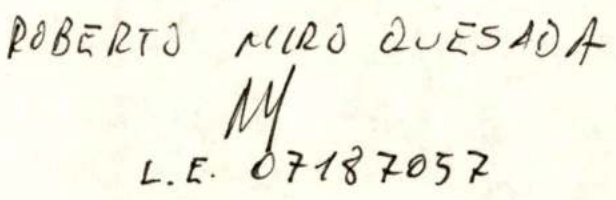 ROBERTO MIRO QUESADA
L.E. 07187057